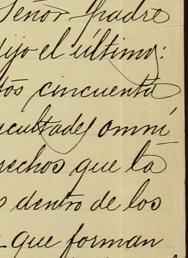 Señor Padre
dijo el último:
tos cincuenta
acultades omní
rechos que la
s dentro de los
que forman